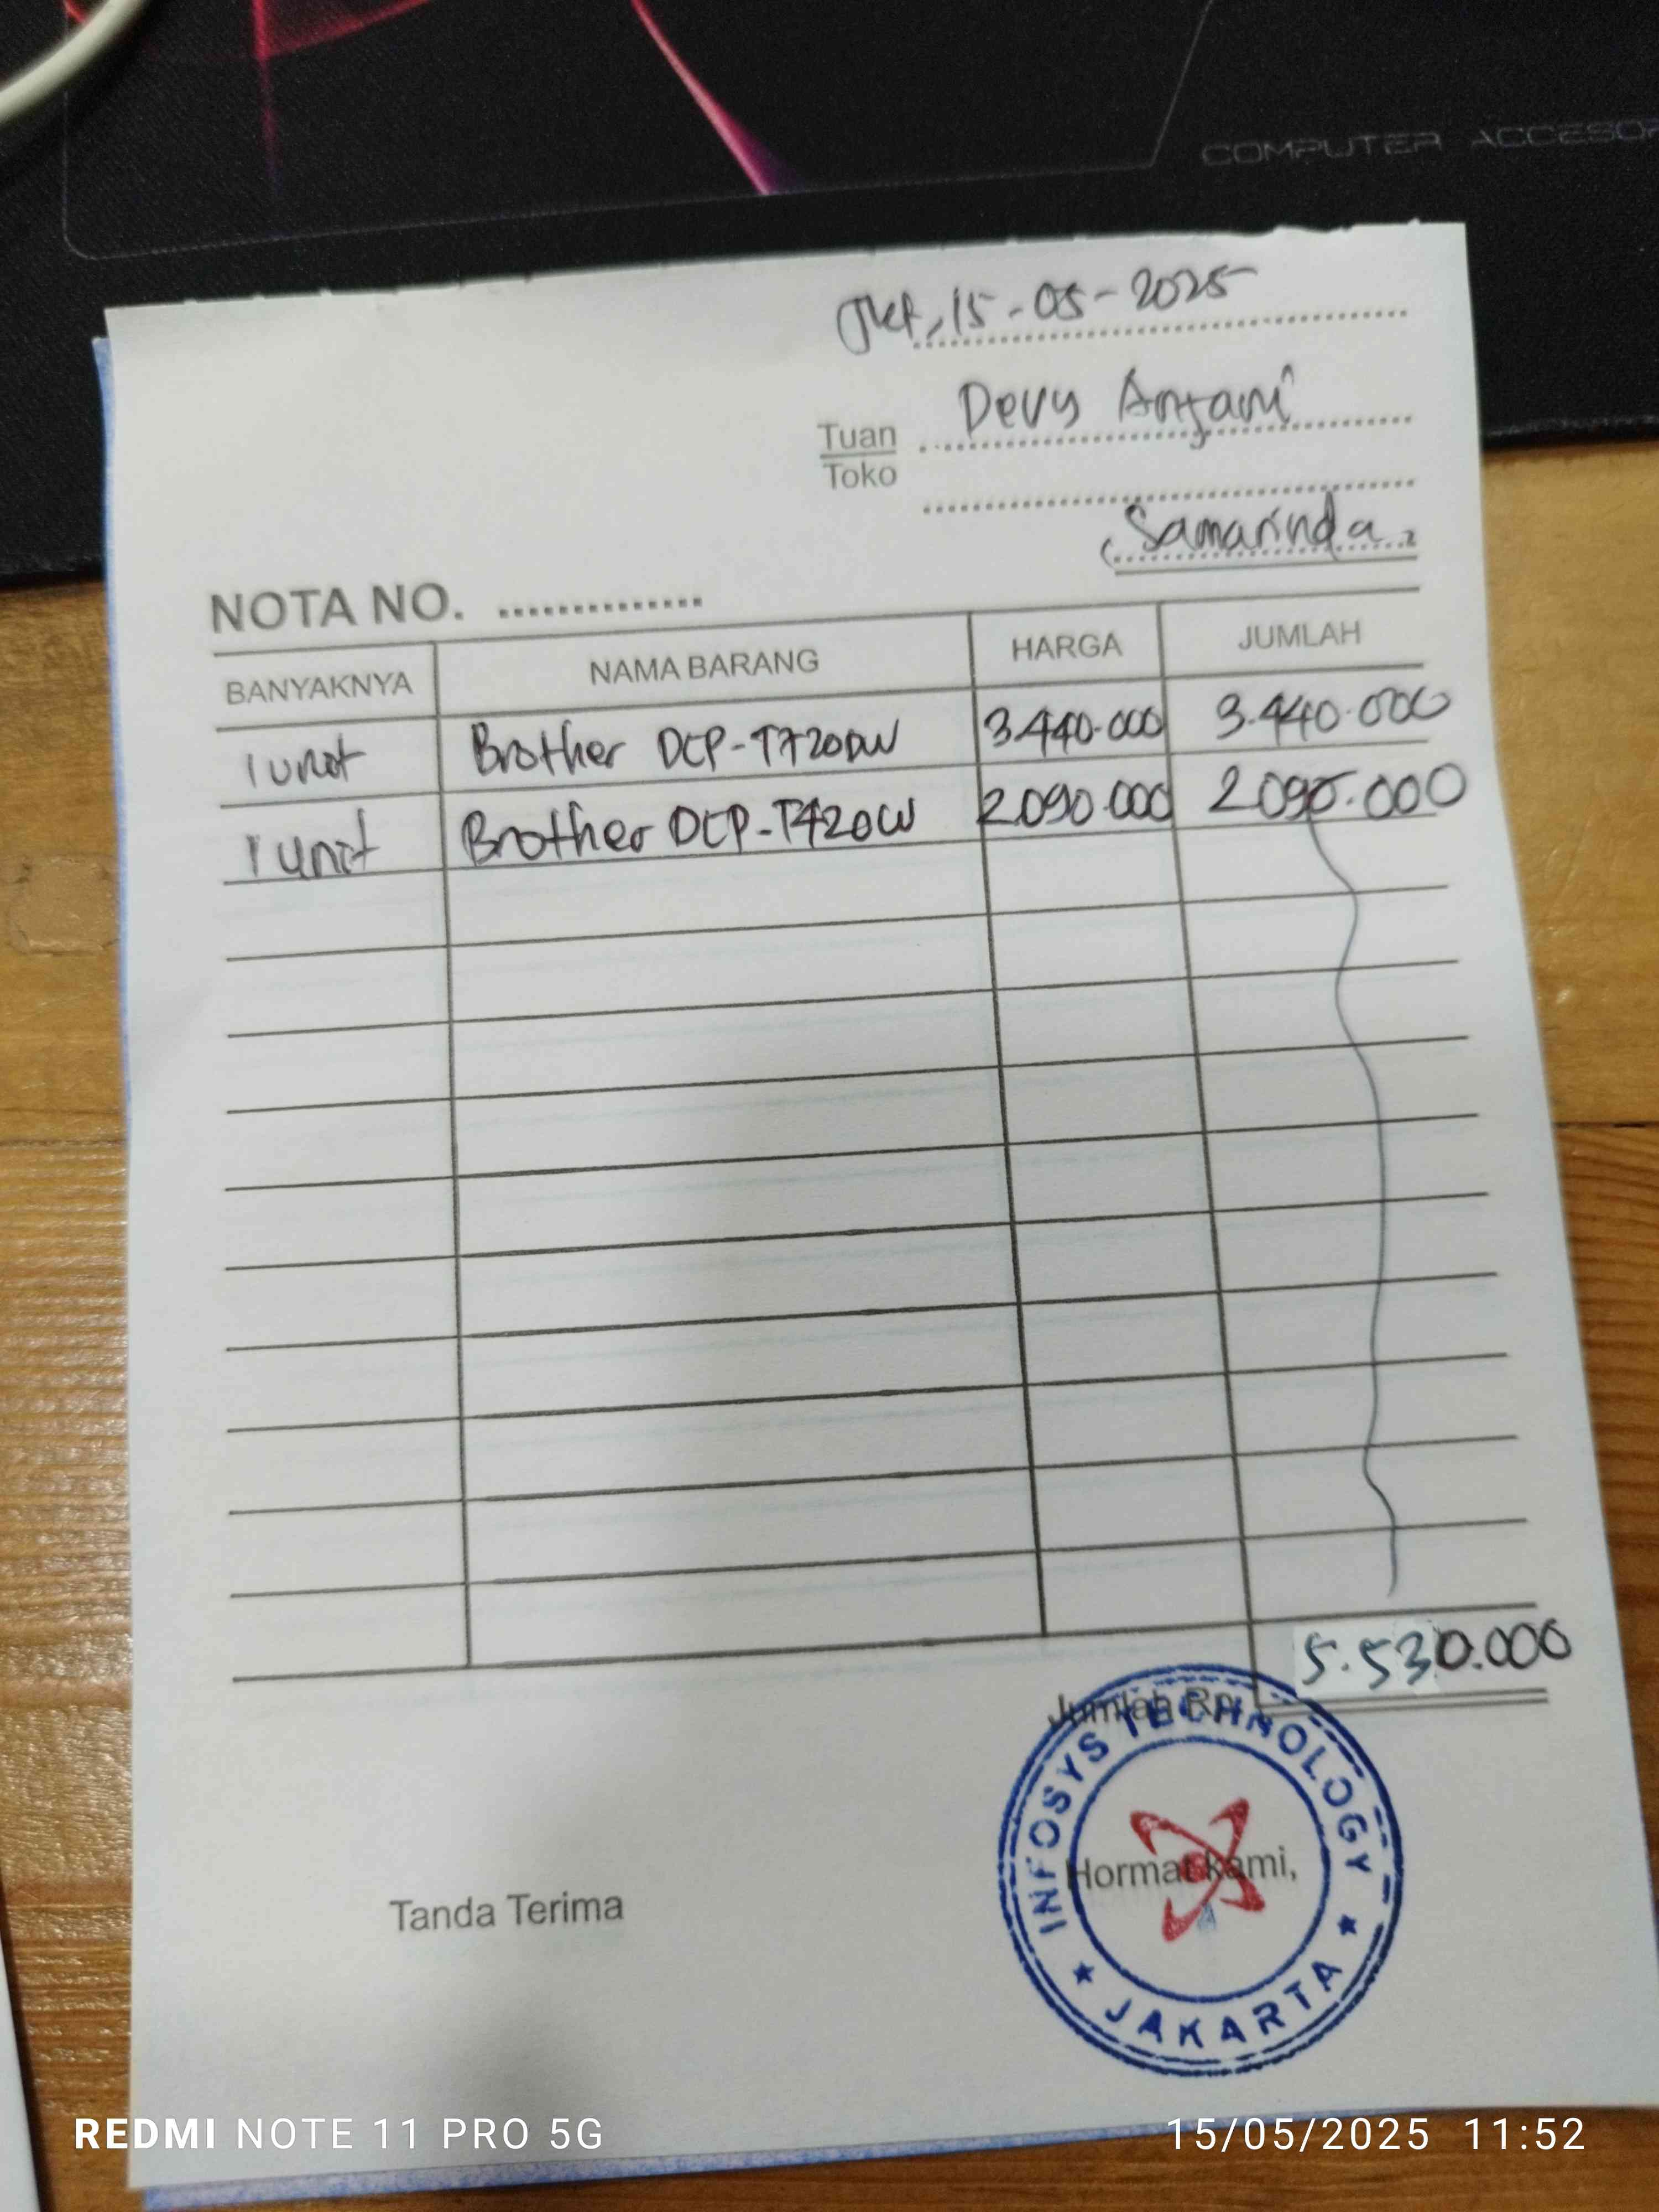 COMPUTER ACCESOR
Jkt, 15-05-2025
Tuan Devy Anjani
Toko
Samarinda
NOTA NO. ..............
BANYAKNYA NAMA BARANG HARGA JUMLAH
1 unit Brother DCP-T720DW 3.440.000 3.440.000
1 unit Brother DCP-T420W 2.090.000 2.090.000
Jumlah Rp. 5.530.000
Tanda Terima Hormat kami,
INFOSYS TECHNOLOGY
JAKARTA
REDMI NOTE 11 PRO 5G 15/05/2025 11:52